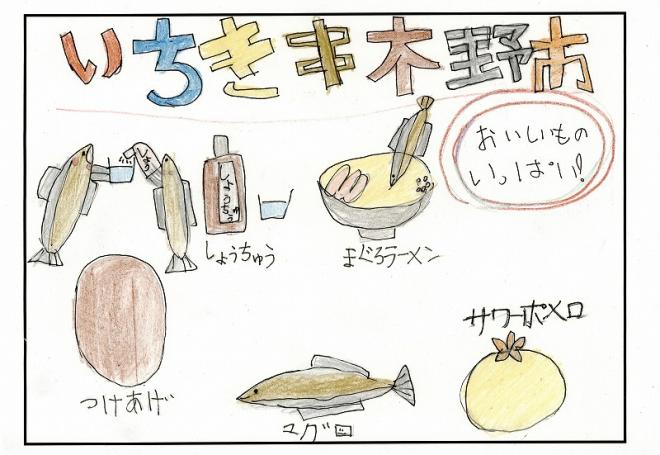 いちき串木野市
おいしいもの
いっぱい!
しょう
しょうちゅう
しょうちゅう
まぐろラーメン
つけあげ
マグロ
サワーポメロ